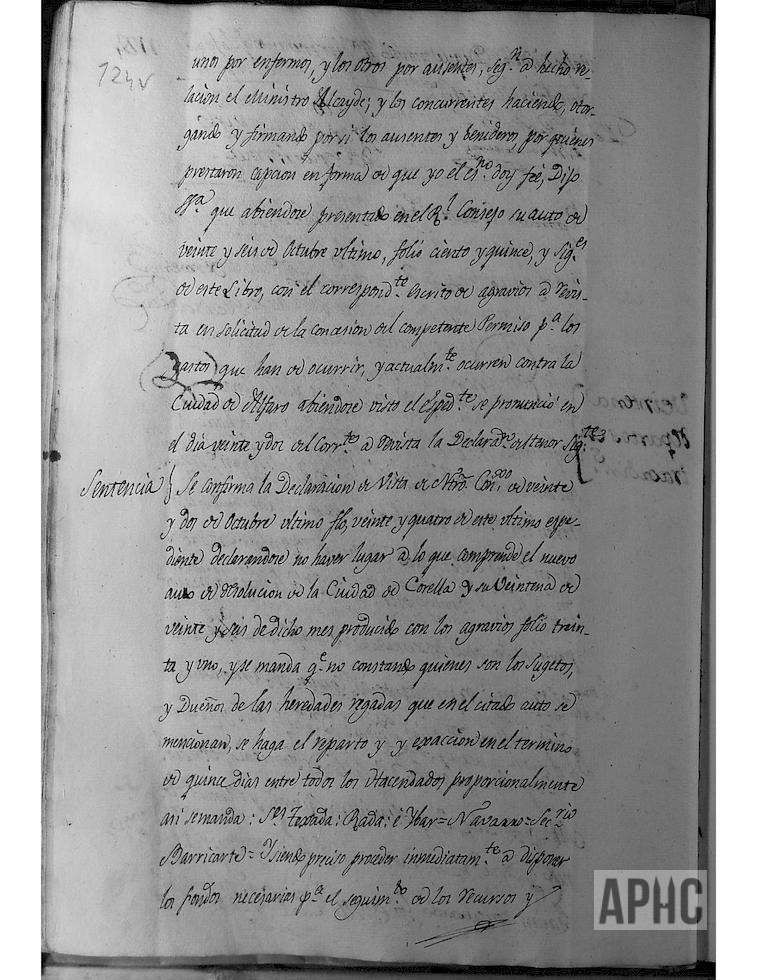 124v
unos por enfermos, y los otros por ausentes, segn à hecho re-
lacion el Ministro Alcayde; y los concurrentes haciendo, otor-
gando y firmando por si los ausentes y benideros, por quienes
prestaron capcion en forma de que yo el esno doy feè, Dijo
Ssa que abiendose presentado en el Rl Consejo su auto de
veinte y seis de Octubre ultimo, folio ciento y quince, y siges
de este Libro, con el correspondte escrito de agravios à revis-
ta en solicitud de la concesion del competente Permiso pa los
Gastos, que han de ocurrir, y actualmte ocurren contra la
Ciudad de Alfaro abiendose visto el espdte se pronunciò en
el dia veinte y dos del corrte à revista la Declaran del tenor sigte
Sentencia } Se confirma la Declaracion de Vista de Ntro. Conso de veinte
y dos de Octubre ultimo flo, veinte y quatro de este ultimo espe-
diente declarandose no haver lugar à lo que comprende el nuevo
auto de resolucion de la Ciudad de Corella y su Veintena de
veinte y seis de dicho mes producido con los agravios folio trein-
ta y uno, y se manda qe no constando quienes son los sugetos,
y Dueños de las heredades regadas que en el citado auto se
mencionan, se haga el reparto y y exaccion en el termino
de quince dias entre todos los Hacendados proporcionalmente
asi se manda: Ses Texada: Rada: è Ybar = Navarro = Secrio
Barricarte = Y siendo preciso proceder inmediatamte à disponer
los fondos necesarios pa el seguimto de los recursos y
APHC